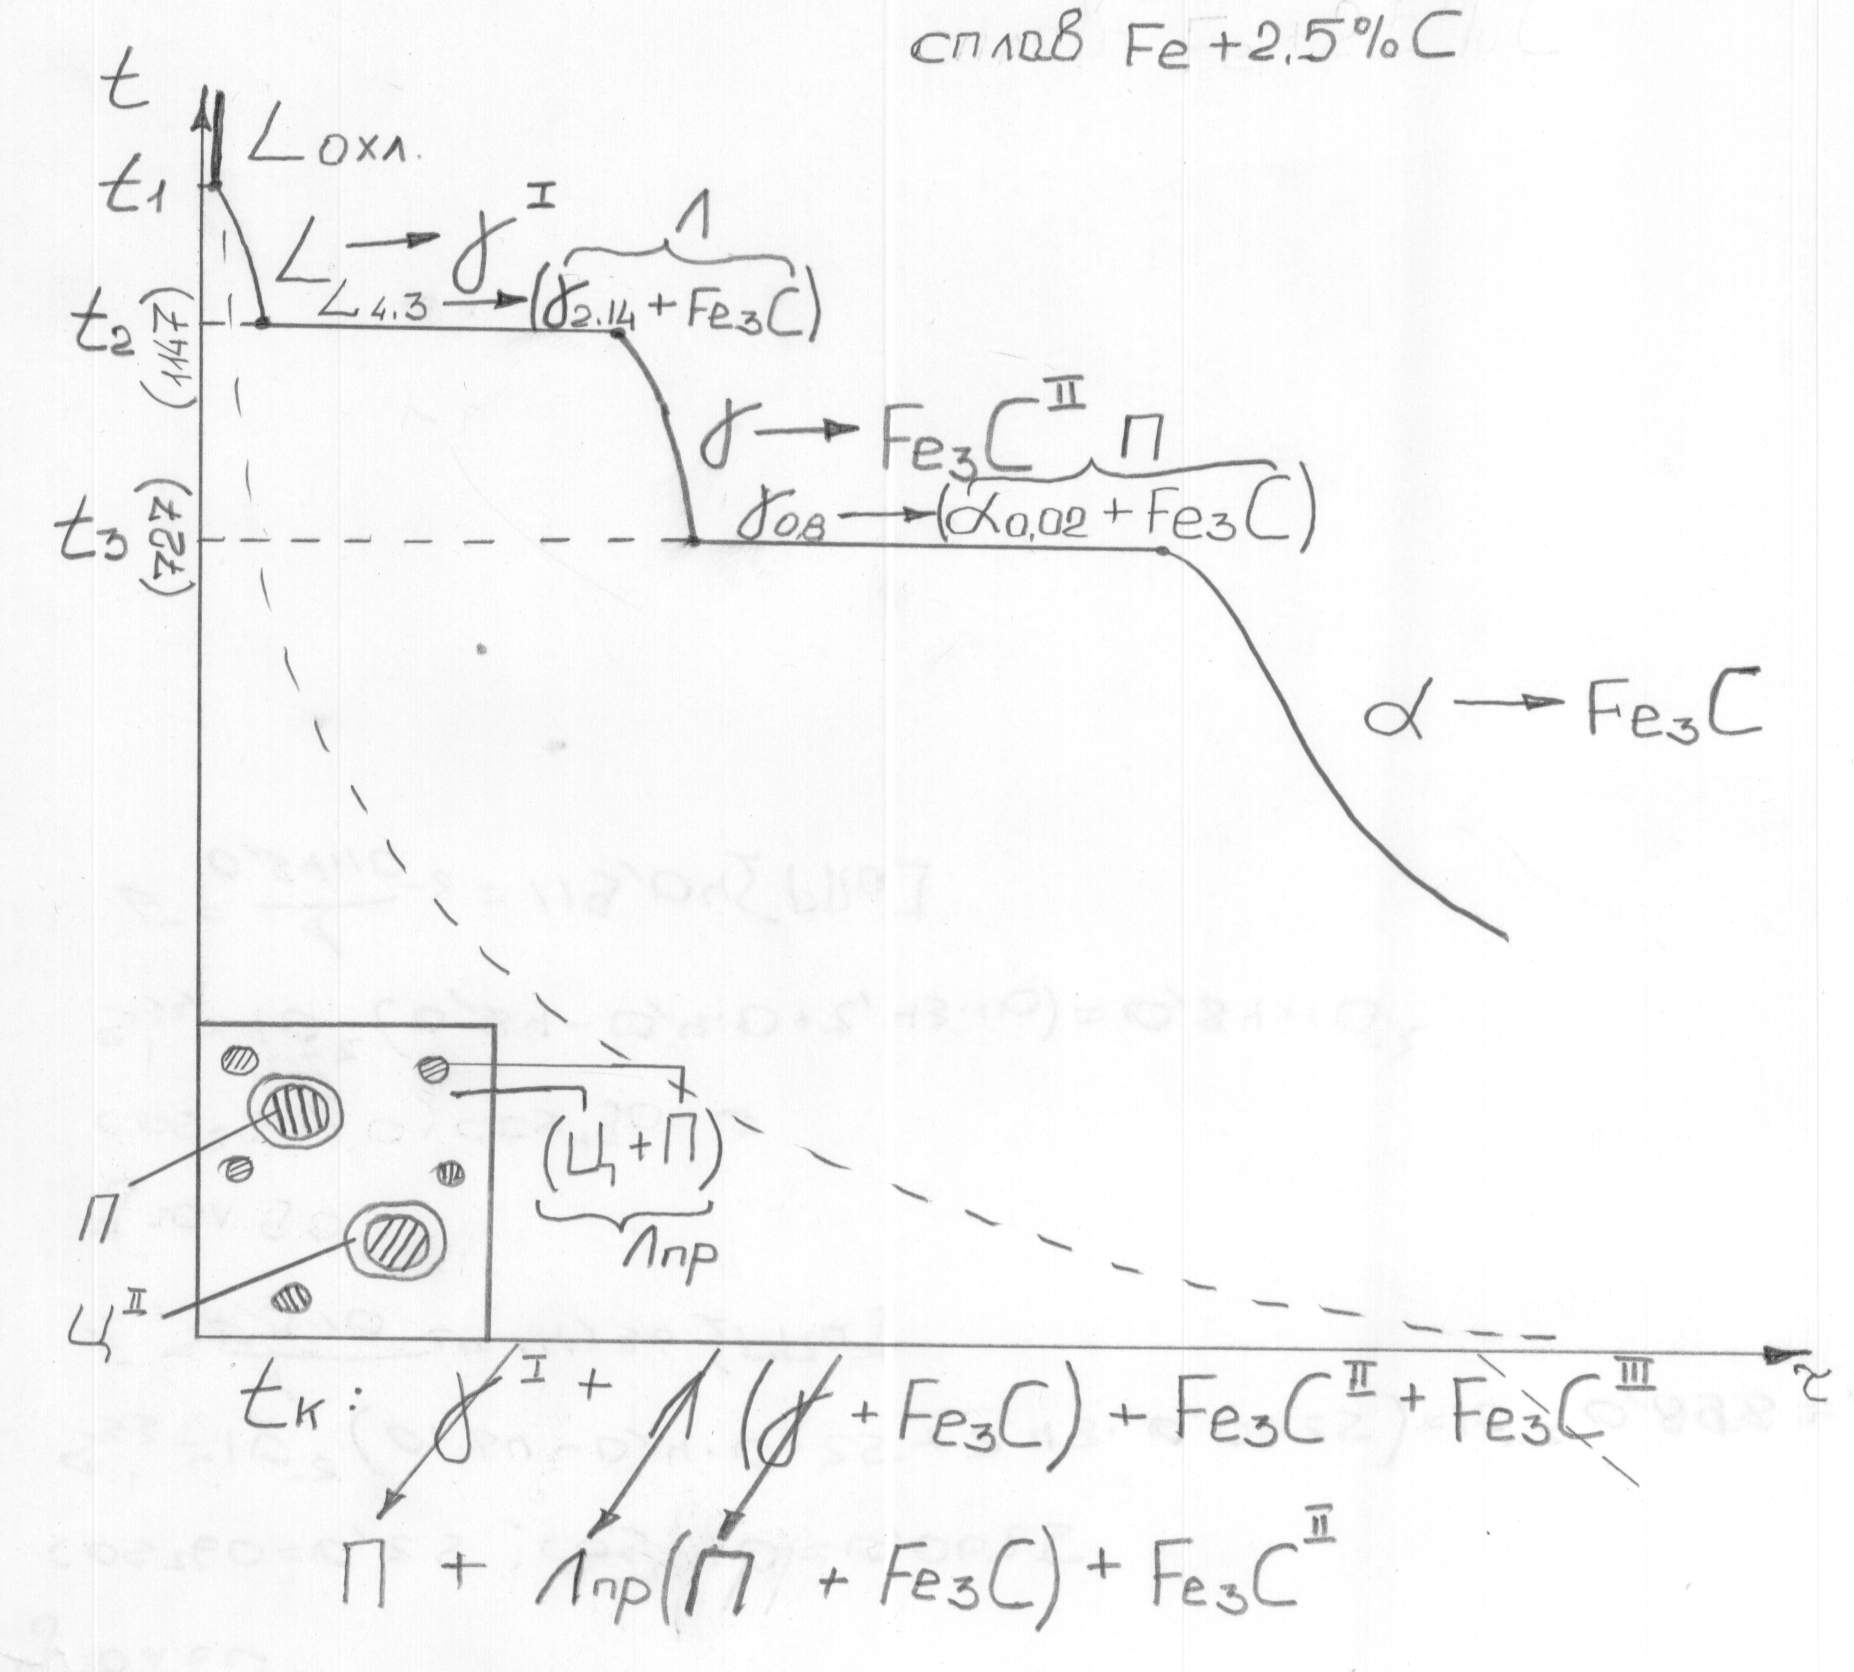 сплав Fe + 2.5% C
t
L охл.
t1
L → γ^I
Л
t2 (1147)
L4.3 → (γ2.14 + Fe3C)
γ → Fe3C^II
П
t3 (727)
γ0,8 → (α0,02 + Fe3C)
α → Fe3C
(Ц + П)
Лпр
П
Ц^II
τ
tк: γ^I + Л (γ + Fe3C) + Fe3C^II + Fe3C^III
П + Лпр (П + Fe3C) + Fe3C^II